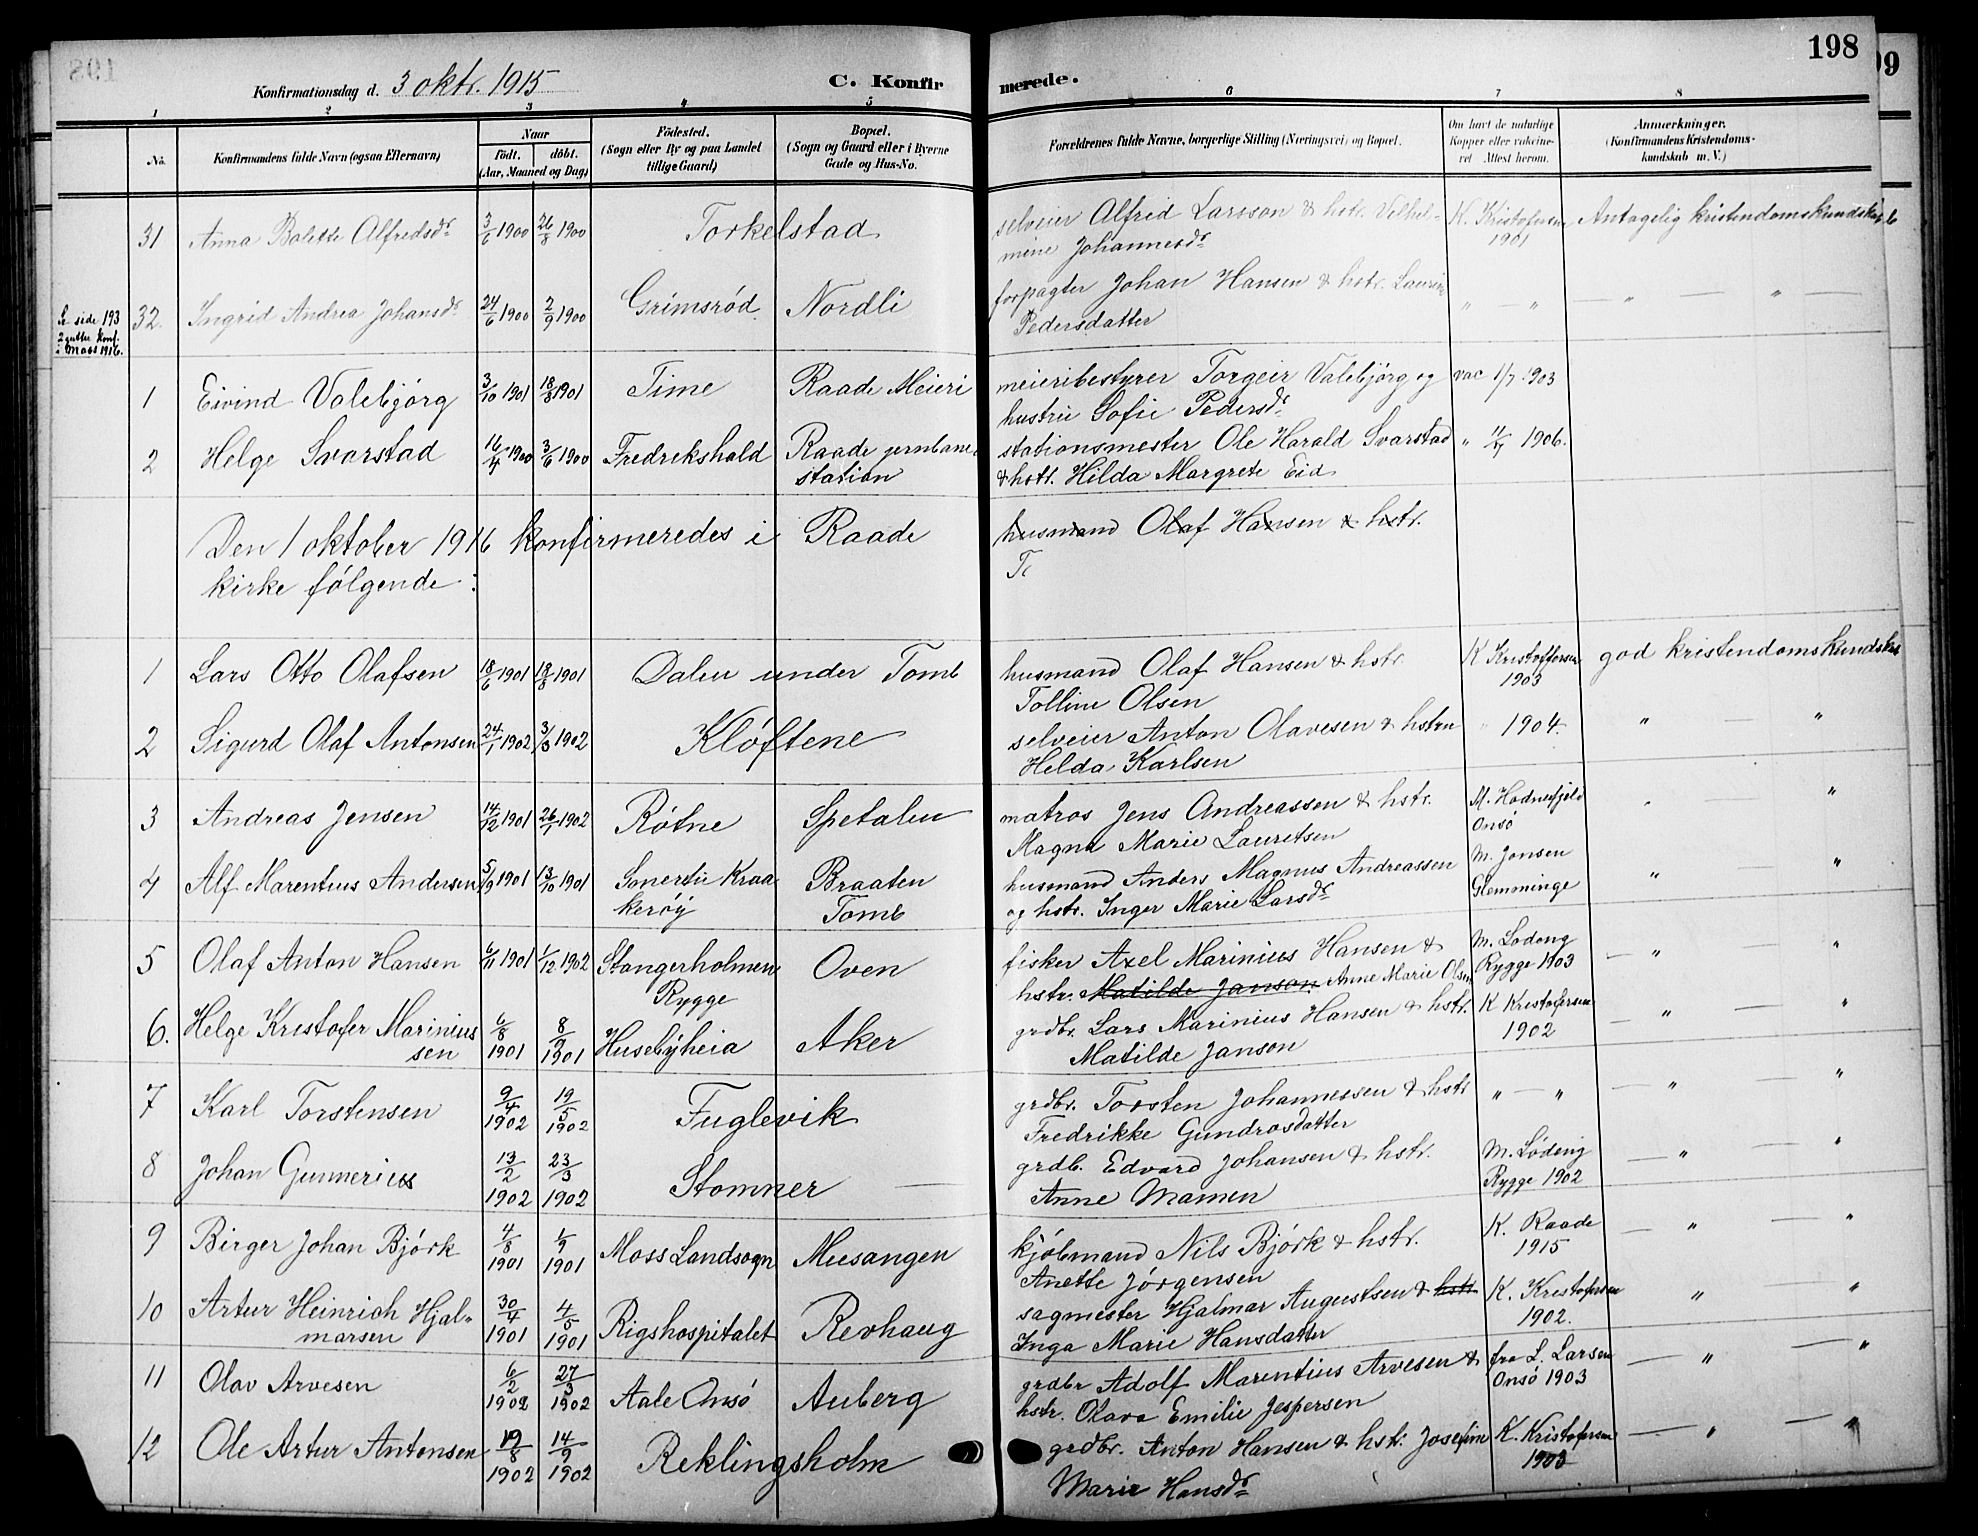 198
Konfirmationsdag d. 3 okt. 1915
C. Konfir merede.
1 2 3 4 5 6 7 8
No.
Konfirmandens fulde Navn (ogsaa Efternavn)
Naar
Födt. döbt.
(Aar, Maaned og Dag)
Födested.
(Sogn eller By og paa Landet
tillige Gaard)
Bopæl.
(Sogn og Gaard eller i Byerne
Gade og Hus-No.
Forældrenes fulde Navne, borgerlige Stilling (Næringsvei) og Bopæl.
Om havt de naturlige
Kopper eller vakcine-
ret Attest herom.
Anmærkninger.
(Konfirmandens Kristendoms-
kundskab m. V.)
31 Anna Bolette Alfredsdr 3/6 1900 26/8 1900 Torkelstad selveier Alfred Larsson & hstr. Vilhel- K. Kristofersen Antagelig kristendomskundskab
mine Johannesdr 1901
32. Ingrid Andrea Johansdr 24/6 1900 2/9 1900 Grimsrød Nordli forpagter Johan Hansen & hstr. Laurine " — " " — " —
Pedersdatter
Se side 193
2 gutter konf.
i Moss 1916.
1 Eivind Valebjørg 3/10 1901 18/8 1901 Time Raade Meieri meieribestyrer Torgeir Valebjørg og vac 1/7 1903
hustru Sofie Pedersdr
2 Helge Svarstad 16/4 1900 3/6 1900 Fredrikshald Raade jernbane stationsmester Ole Harald Svarstad " 1906.
station & hstr. Hilda Margrete Eid
Den 1 oktober 1916 konfirmeredes i Raade husmand Olaf Hansen & hstr.
kirke følgende : T
1 Lars Otto Olafsen 18/6 1901 18/8 1901 Dalen under Tomb husmand Olaf Hansen & hstr. K Kristoffersen god kristendomskundskab
Tolline Olsen 1903
2 Sigurd Olaf Antonsen 24/1 1902 3/3 1902 Kløftene selveier Anton Olavesen & hstru " 1904. " — "
Helda Karlsen
3 Andreas Jensen 14/12 1901 26/1 1902 Røtne Spetalen matros Jens Andreassen & hstr. M. Hodnefjeld " — "
Magna Marie Lauretsen Onsø
4 Alf Marentius Andersen 5/9 1901 13/10 1901 Kraa Braaten husmand Anders Magnus Andreassen M. Jonsen " — "
kerøy Tomb og hstr. Inger Marie Larsdr Glemminge
5 Olaf Anton Hansen 6/11 1901 1/12 1902 Stangerholmen Oven fisker Axel Marinius Hansen & M. Lodeng — " — "
Rygge hstr. Matilde Janson Anne Marie Olsen Rygge 1903
6. Helge Kristofer Marinius 6/8 1901 8/9 1901 Husebyheia Aker grdbr. Lars Marinius Hansen & hstr. K Kristofersen — " — "
sen Matilde Janson 1902
7 Karl Torstensen 9/4 1902 19/5 1902 Fuglevik grdbr. Torsten Johannessen & hstr " — " — " — "
Fredrikke Gundrosdatter
8 Johan Gunnerius 13/2 1902 23/3 1902 Stomner — grdb. Edvard Johansen & hstr. M. Lødeng — " — "
Anne Mamen Rygge 1902
9 Birger Johan Bjørk 4/8 1901 1/9 1901 Moss Landsogn Musangen kjøbmand Nils Bjørk & hstr. K. Raade — " — "
Anette Jørgensen 1915
10 Artur Heinrich Hjal- 30/4 1901 4/5 1901 Rigshospitalet Revhaug sagmester Hjalmar Augustsen & hstr K. Kristofersen " — "
marsen Inga Marie Hansdatter 1902.
11 Olav Arvesen 6/2 1902 27/3 1902 Aale Onsø Auberg grdbr Adolf Marentius Arvesen & fra L. Larsen — " — "
hstr. Olava Emilie Jespersen Onsø 1903
12 Ole Artur Antonsen 19/8 1902 14/9 1902 Reklingsholm grdbr. Anton Hansen & hstr. Josefine K. Kristofersen — " — "
Marie Hansdr 1903